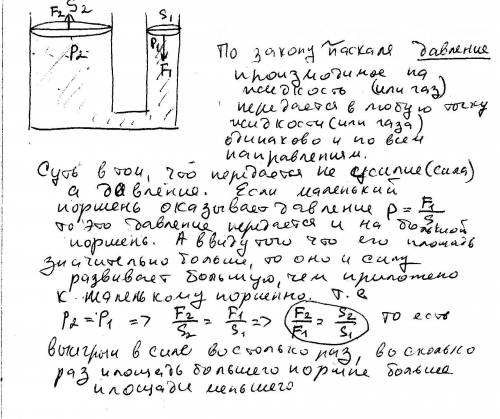 F2 S2 S1
P2 P1 F1
По закону Паскаля давление
производимое на
жидкость (или газ)
передается в любую точку
жидкости (или газа)
одинаково и по всем
направлениям.
Суть в том, что передается не усилие (сила)
а давление. Если маленький
поршень оказывает давление P = F1/S1
то это давление передается и на большой
поршень. А ввиду того что его площадь
значительно больше, то он и силу
развивает большую, чем приложено
к маленькому поршню. т.е
P2 = P1 => F2/S2 = F1/S1 => F2/F1 = S2/S1 то есть
выигрыш в силе во столько раз, во сколько
раз площадь большего поршня больше
площади меньшего